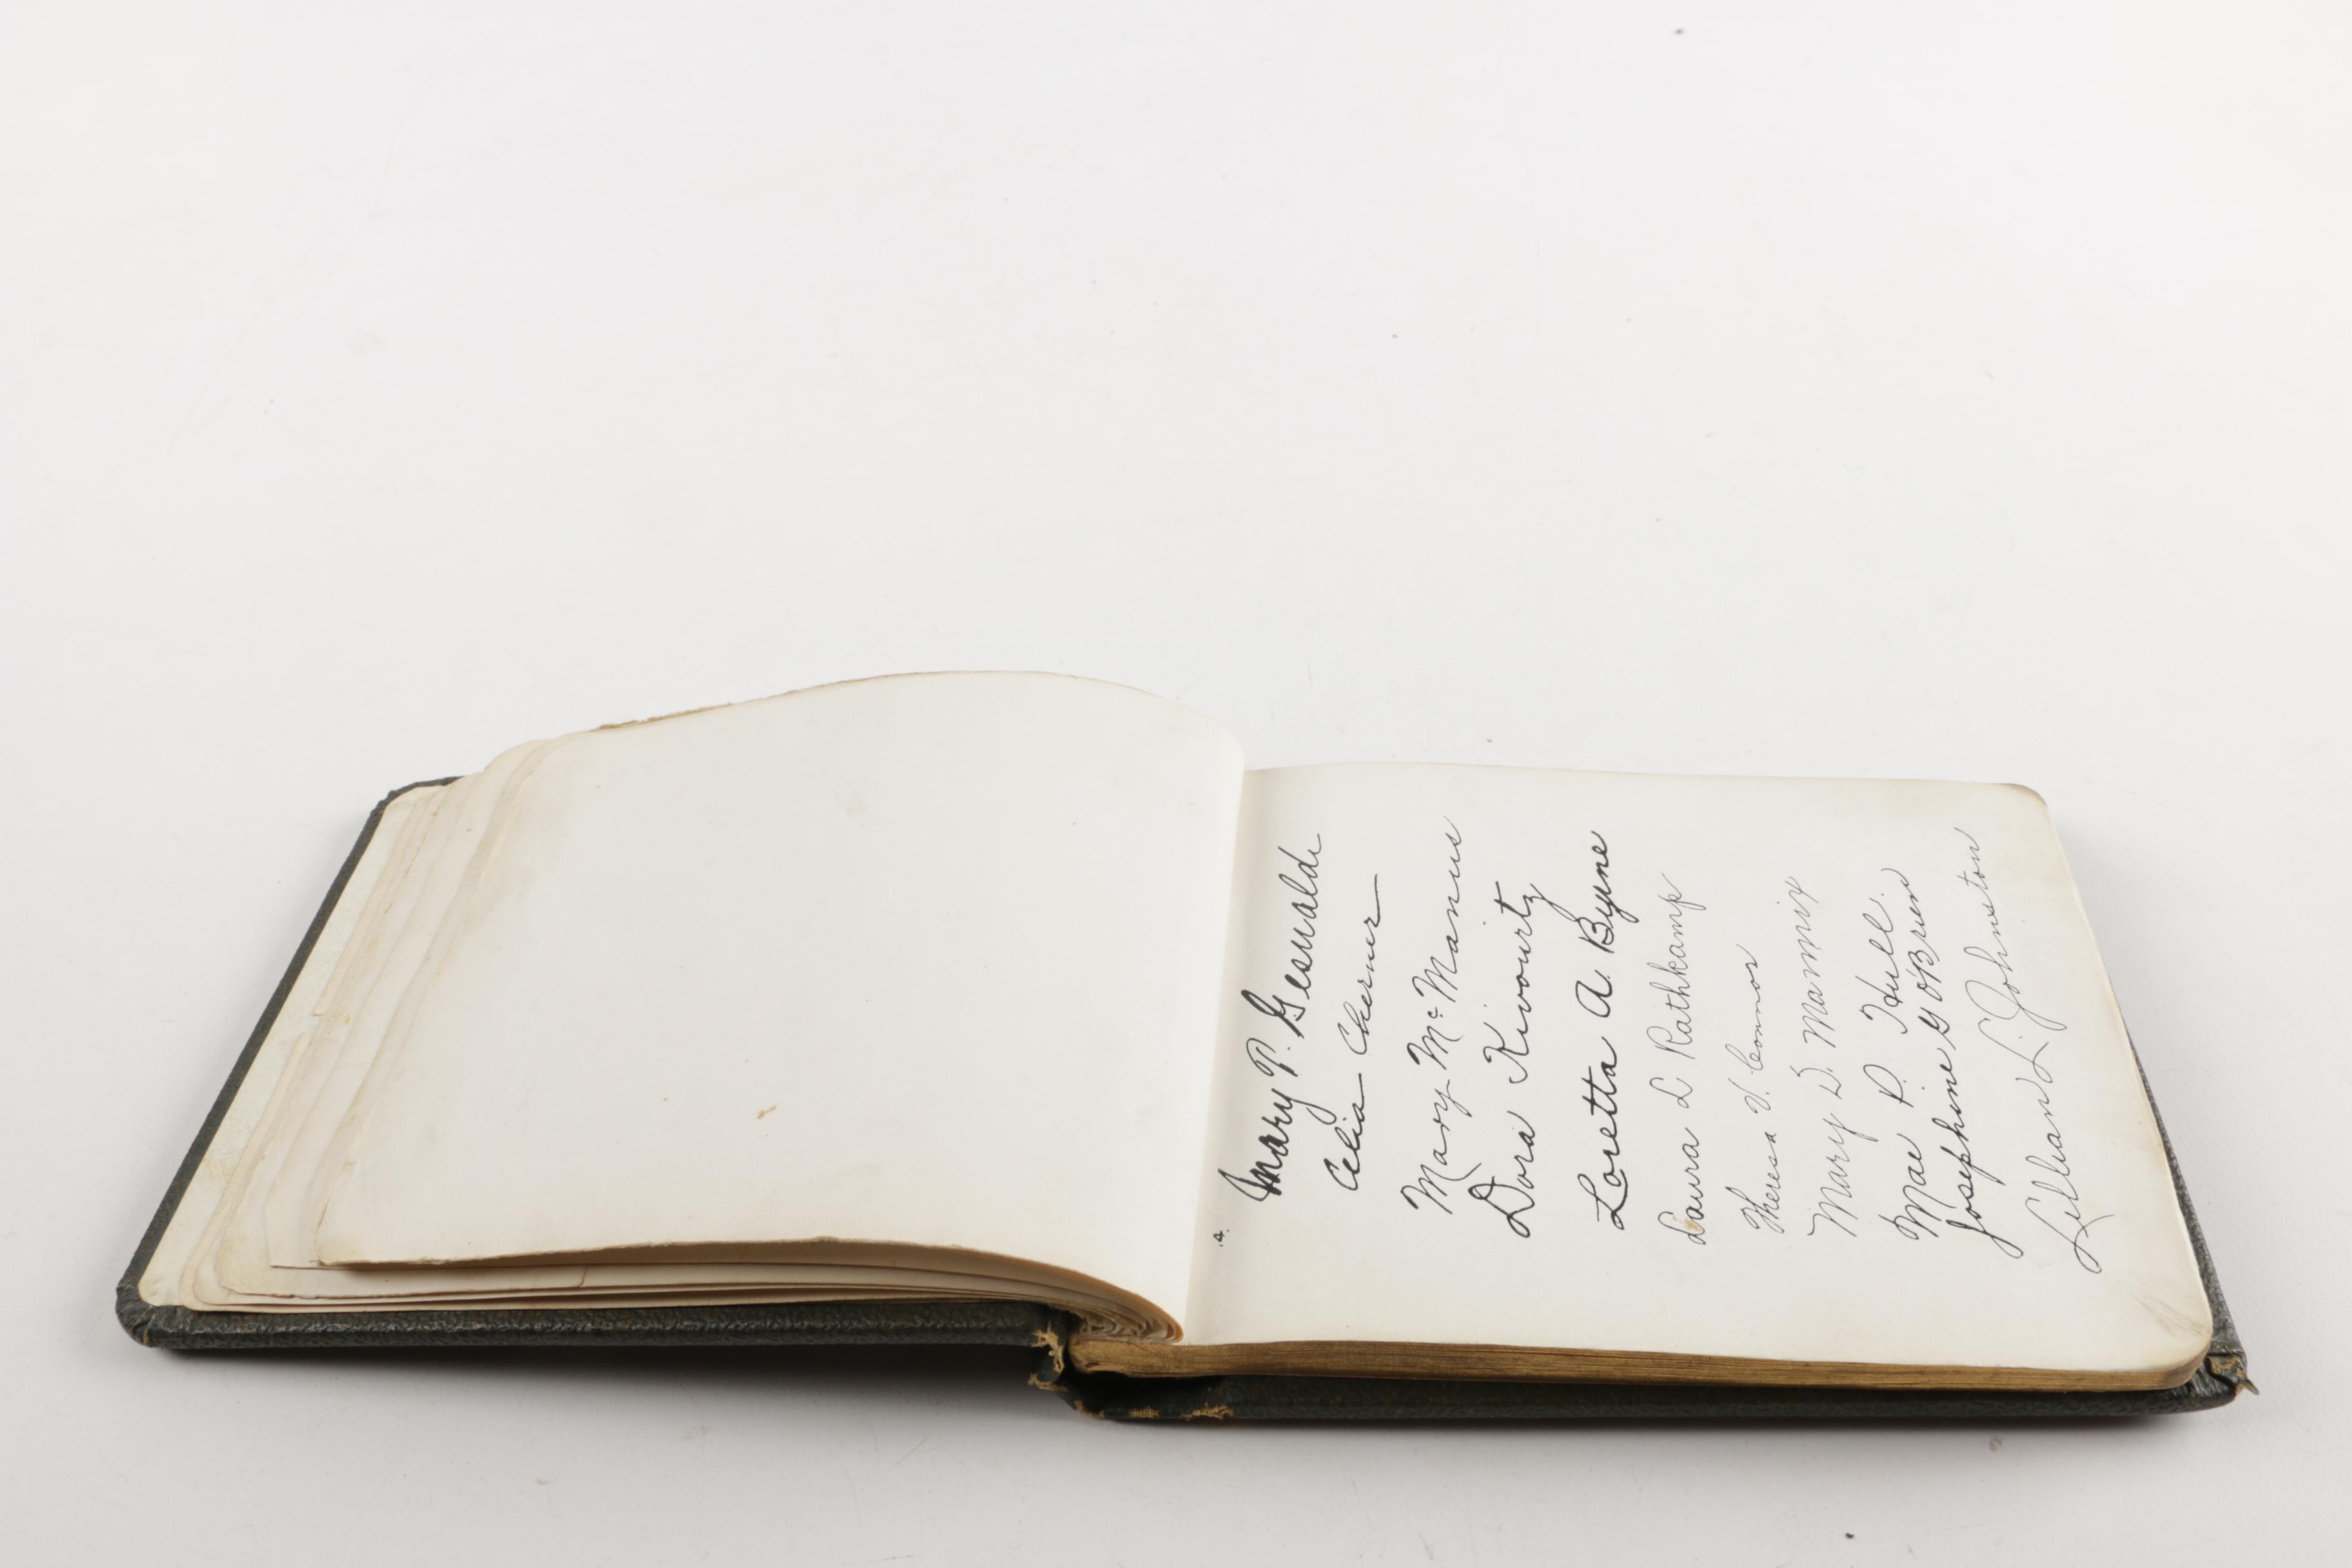 4.
Mary P. Gesualdi
Celia Cherner
Mary Mc Manus
Dora Kivovitz
Loretta A. Byrne
Laura L Rathkamp
Theresa V. Connor
Mary D. Mannix
Mae P. Hull.
Josephine G O'Brien
Lillian L. Johnston